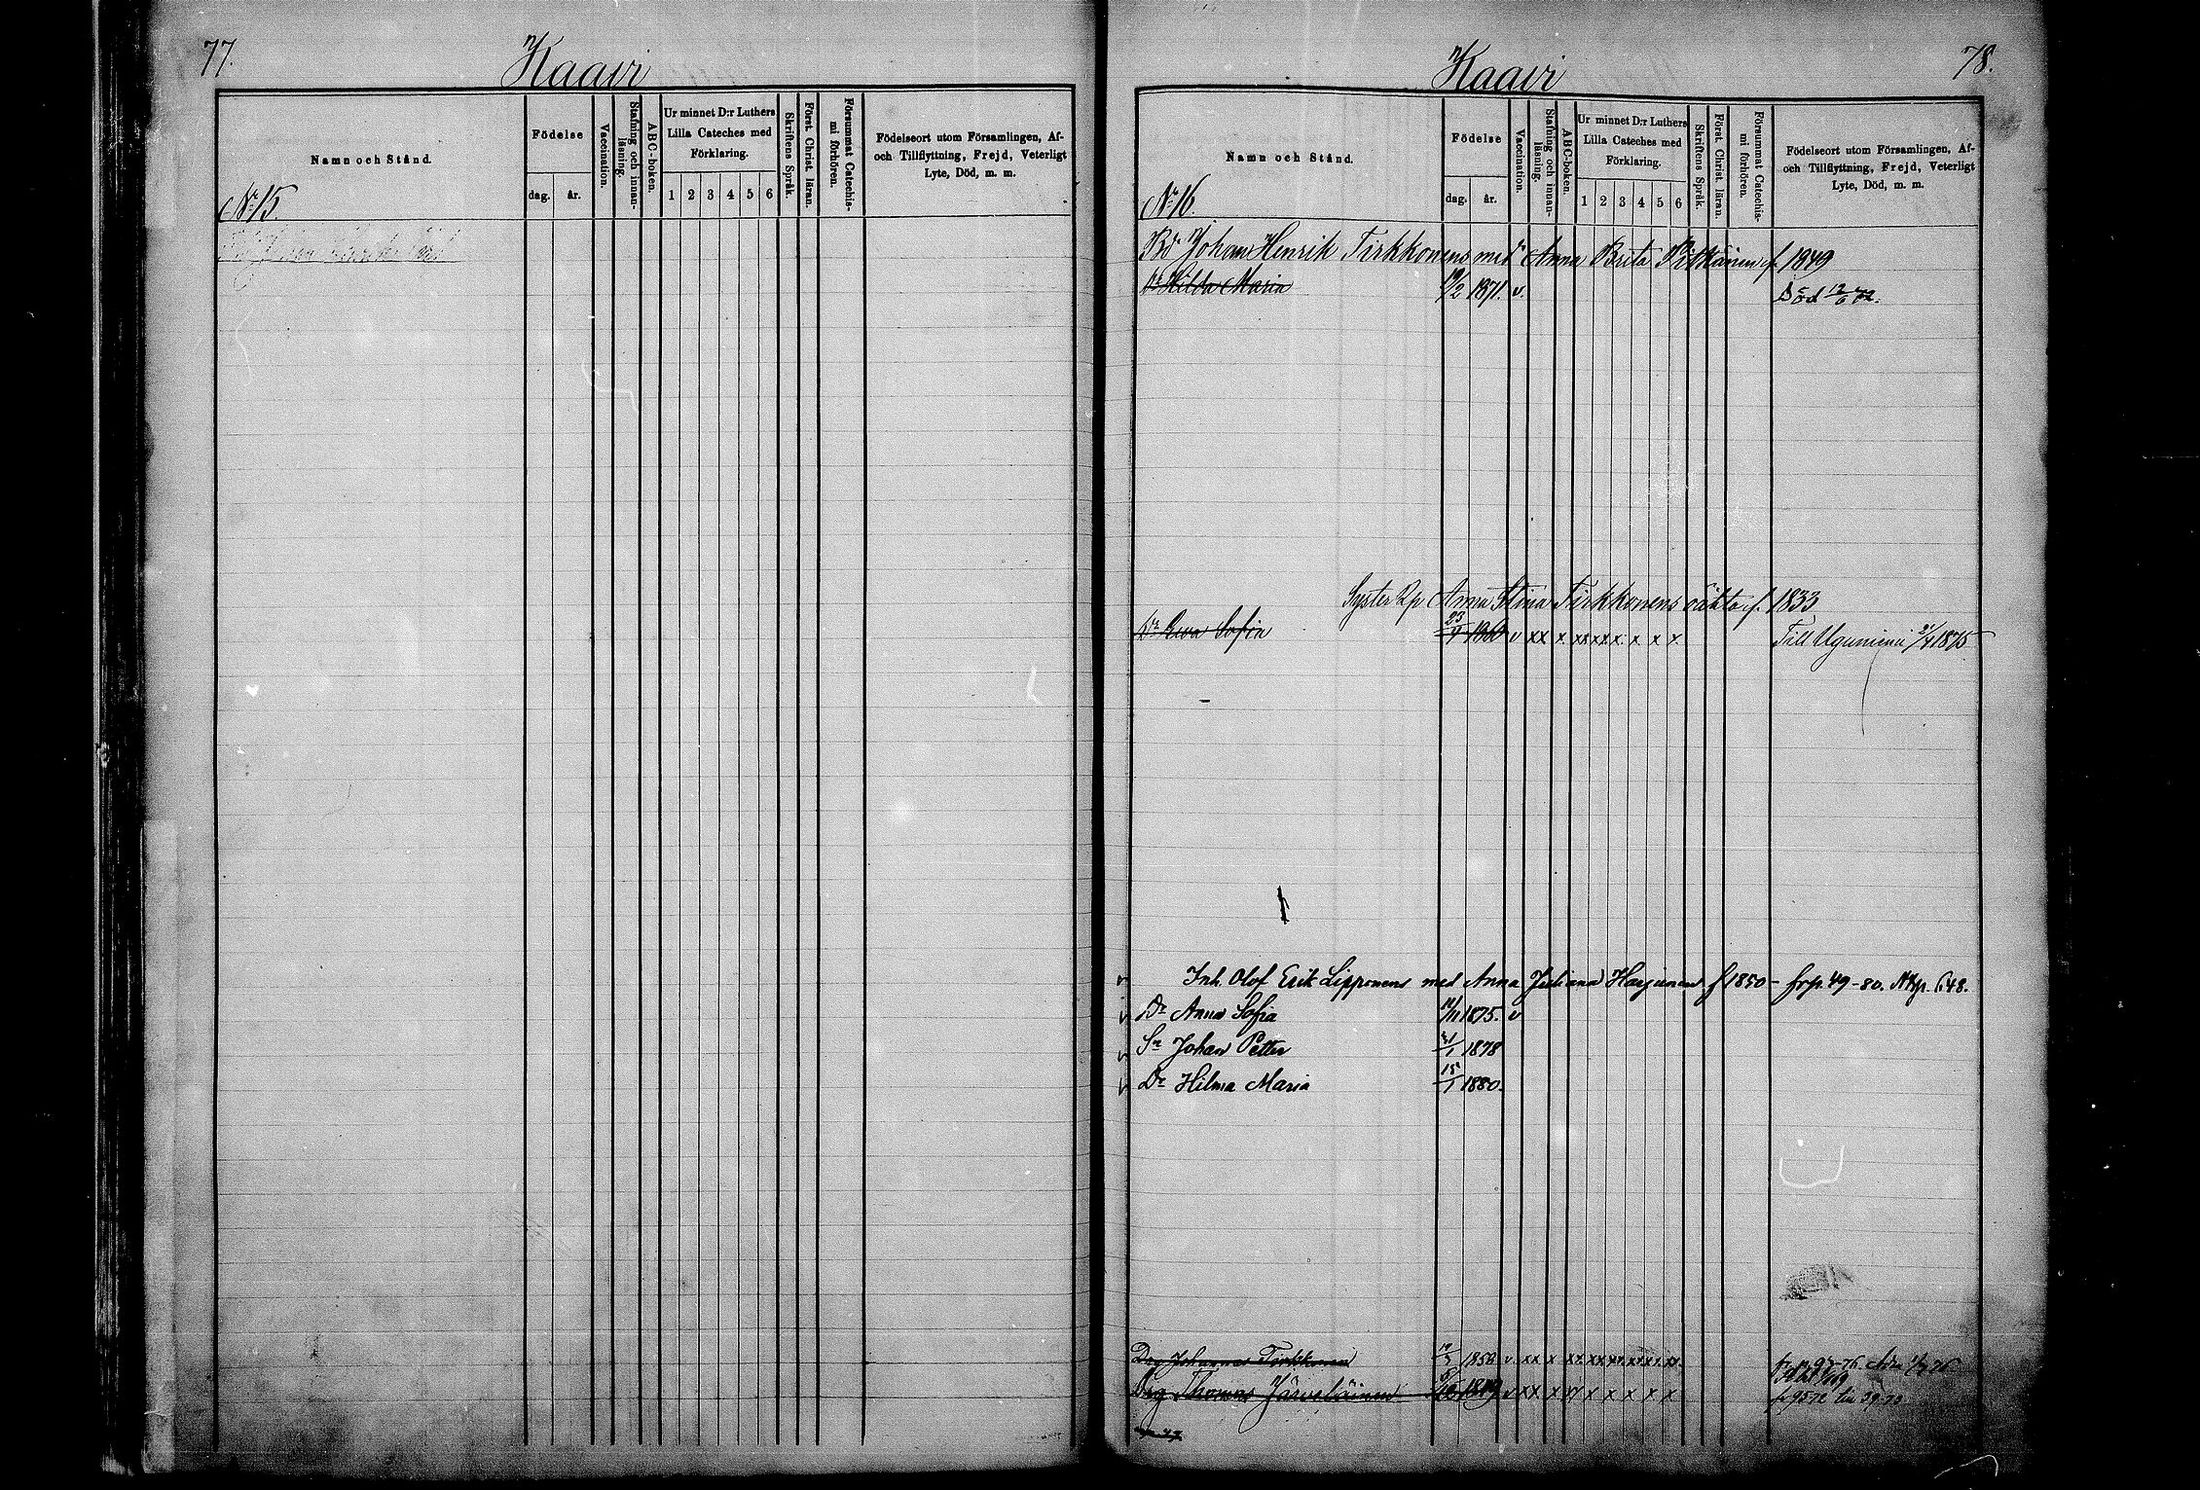 77.
Kaavi
Namn och Stånd.
Födelse
dag.
år.
Vaccination.
Stafning och innan-
läsning.
ABC-boken.
Ur minnet D:r Luthers
Lilla Cateches med
Förklaring.
1 2 3 4 5 6
Skriftens Språk.
Först. Christ. läran.
Försummat Catechis-
mi förhören.
Födelseort utom Församlingen, Af-
och Tillflyttning, Frejd, Veterligt
Lyte, Död, m. m.
No 15
Kaavi
78.
Namn och Stånd.
Födelse
dag.
år.
Vaccination.
Stafning och innan-
läsning.
ABC-boken.
Ur minnet D:r Luthers
Lilla Cateches med
Förklaring.
1 2 3 4 5 6
Skriftens Språk.
Först. Christ. läran.
Försummat Catechis-
mi förhören.
Födelseort utom Församlingen, Af-
och Tillflyttning, Frejd, Veterligt
Lyte, Död, m. m.
No 16.
Bd Johan Henrik Tirkkonens med Anna Brita Pitkänen f. 1849
Dr Hilda Maria /2 1871. v. Död 12/6
Syster Anna Stina Tirkkonens oäkta f. 1833
Dr Eva Sofia 23/9 1860 v xx x xx xx x x x x Till 1875
v Inh. Olof Erik Lipponens med Anna Juliana f 1850 - frp. 49-80. 648.
v Dr Anna Sofia /11 1875. v
v Sn Johan Petter 21/1 1878
v Dr Hilma Maria 15/1 1880.
Drg Johannes Tirkkonen 1858 v. xx x xx xx xx xx xx xx
Drg Thomas Järveläinen v xx x xx x x x x x